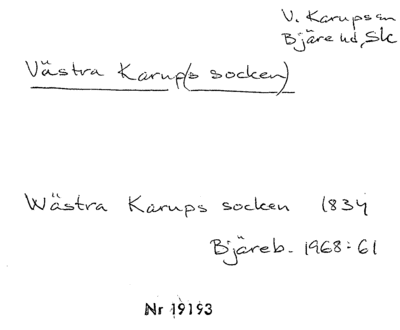 V. Karups sn
Bjäre hd, Sk
Västra Karup(s socken)
Wästra Karups socken 1834
Bjäreb. 1968:61
Nr 19193